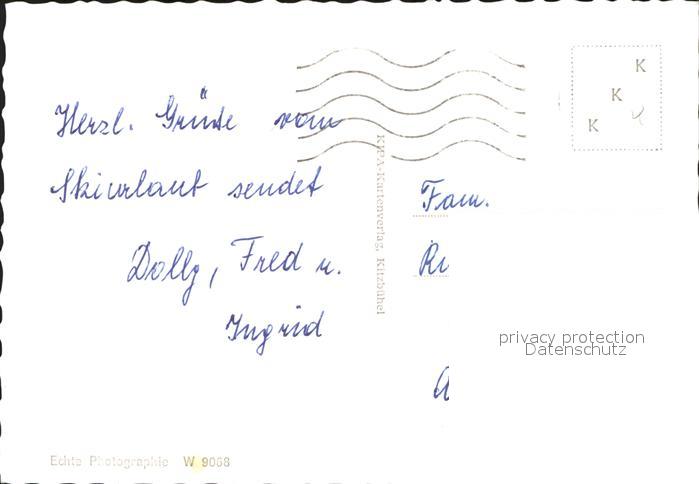 Herzl. Grüße vom
Skiurlaub sendet
Dolly, Fred u.
Ingrid
KPA-Kartenverlag, Kitzbühel
K
K
K
Fam.
privacy protection
Datenschutz
Echte Photographie W 9068